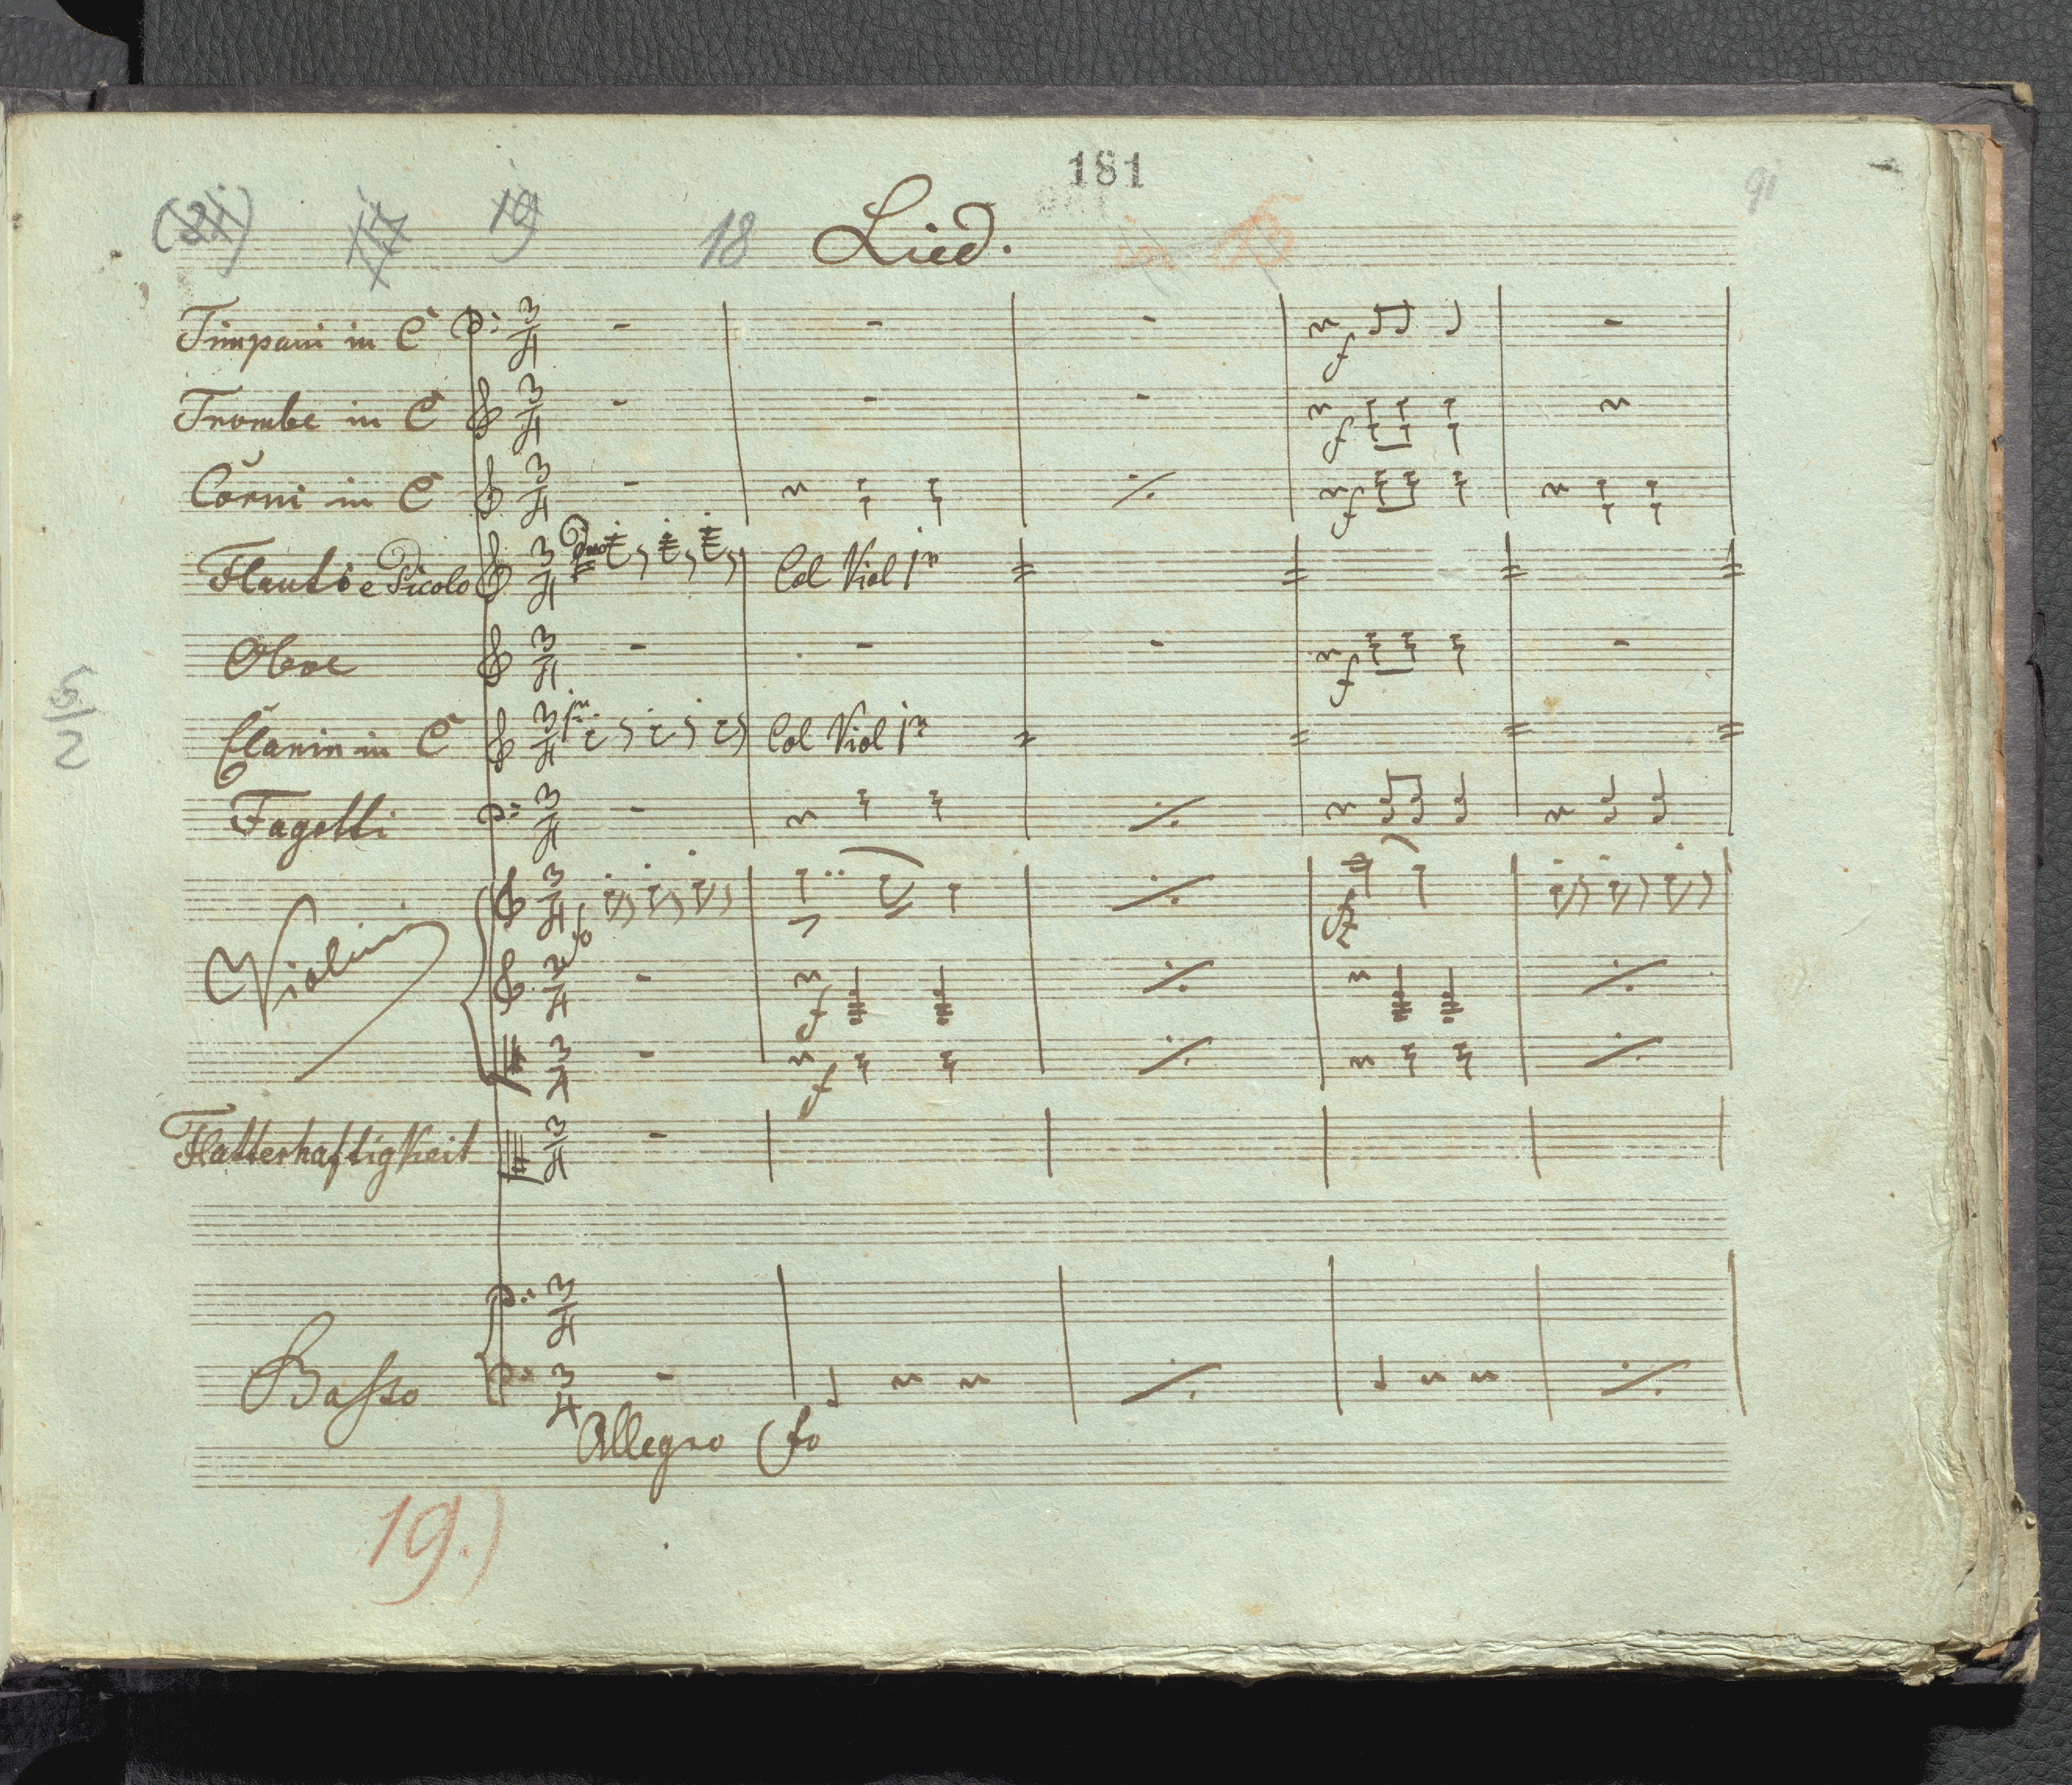 181
91
(21) 17 19 18 Lied.
Timpani in C
f
Trombe in C
f
Corni in C
f
Flauto e Picolo Col Viol 1mo
Oboe
f
Clarin in C Col Viol 1mo
5
2
Fagotti
fo fz
Violini
f
f
Flatterhaftigkeit
Basso
Allegro fo
19.)